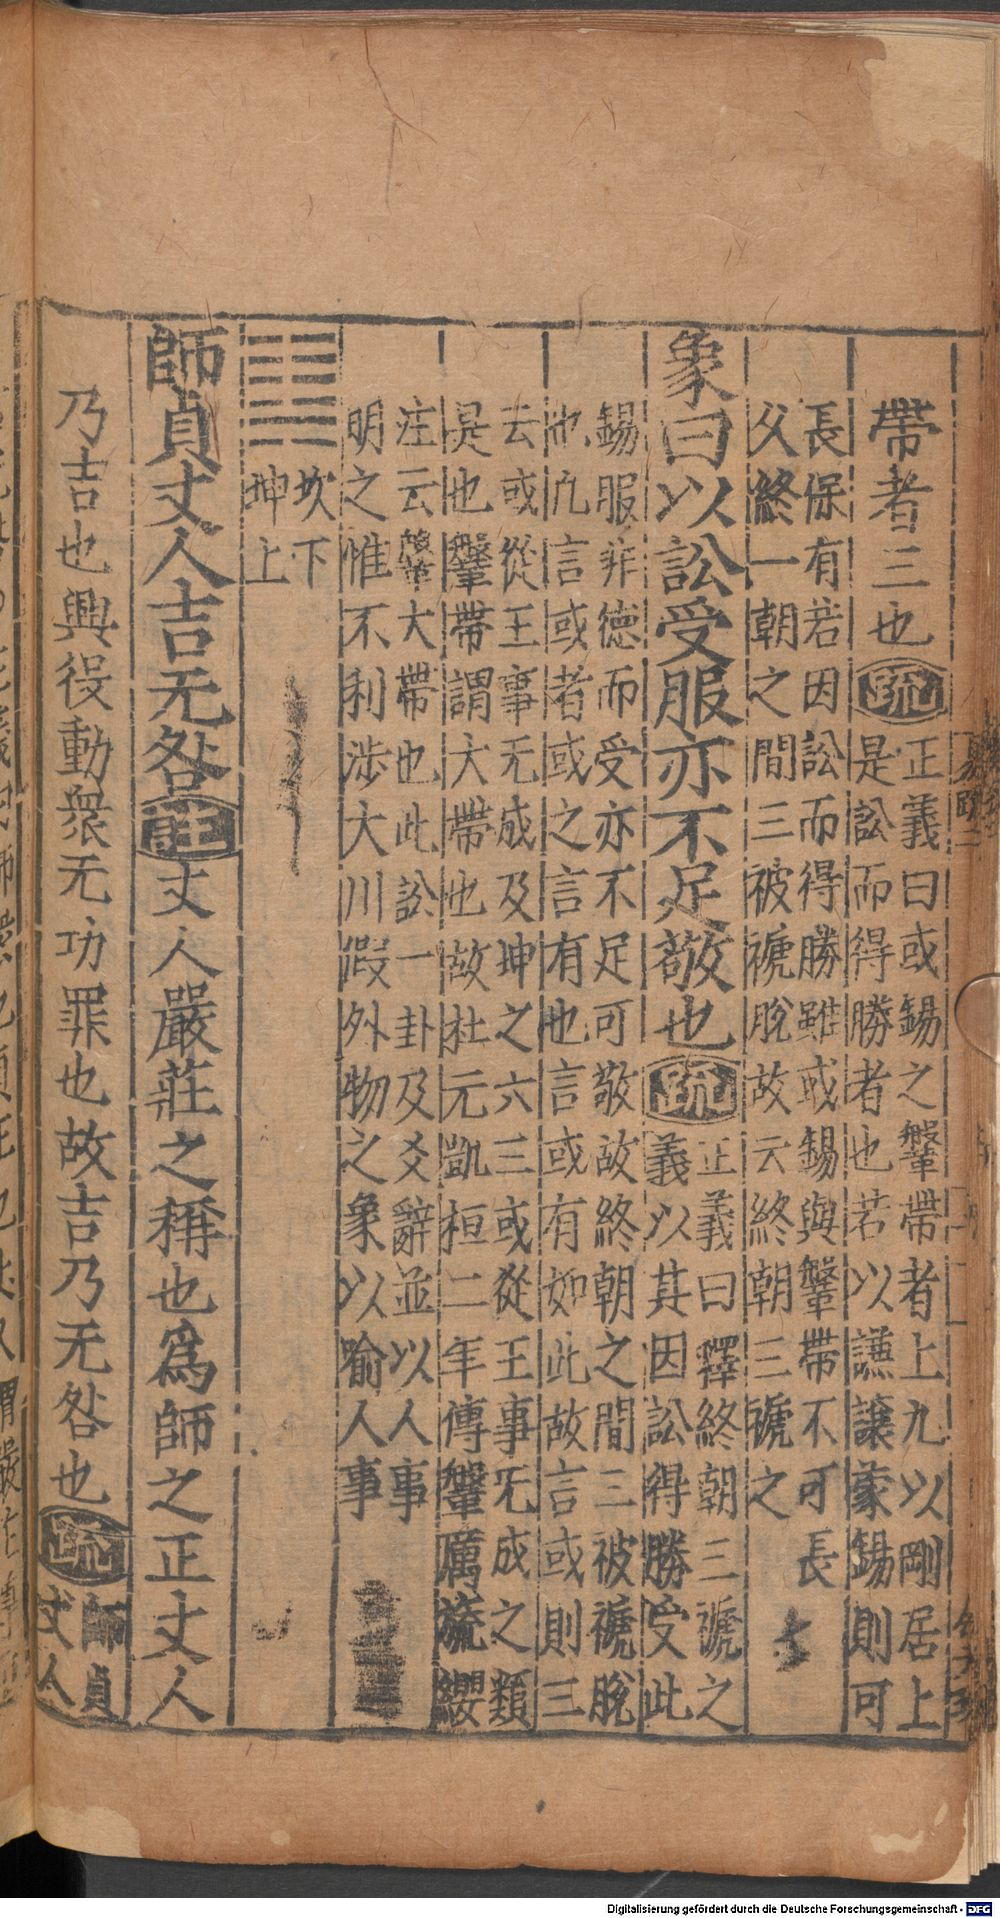 帶者三也疏正義曰或錫之鞶帶者上九以剛居上
是訟而得勝者也若以謙讓蒙錫則可
長保有若因訟而得勝雖或錫與鞶帶不可長
久終一朝之間三被褫脫故云終朝三褫之
象曰以訟受服亦不足敬也疏正義曰釋終朝三褫之
義以其因訟得勝受此
錫服非德而受亦不足可敬故終朝之間三被褫脫
也凡言或者或之言有也言或有如此故言或則三
去或從王事无成及坤之六三或從王事旡成之類
是也鞶帶謂大帶也故杜元凱桓二年傳鞶厲旒纓
注云鞶大帶也此訟一卦及爻辭並以人事
明之惟不利涉大川假外物之象以喻人事
䷆坎下
坤上
師貞丈人吉无咎註丈人嚴莊之稱也為師之正丈人
乃吉也興役動衆无功罪也故吉乃无咎也疏師貞
丈人
Digitalisierung gefördert durch die Deutsche Forschungsgemeinschaft - DFG